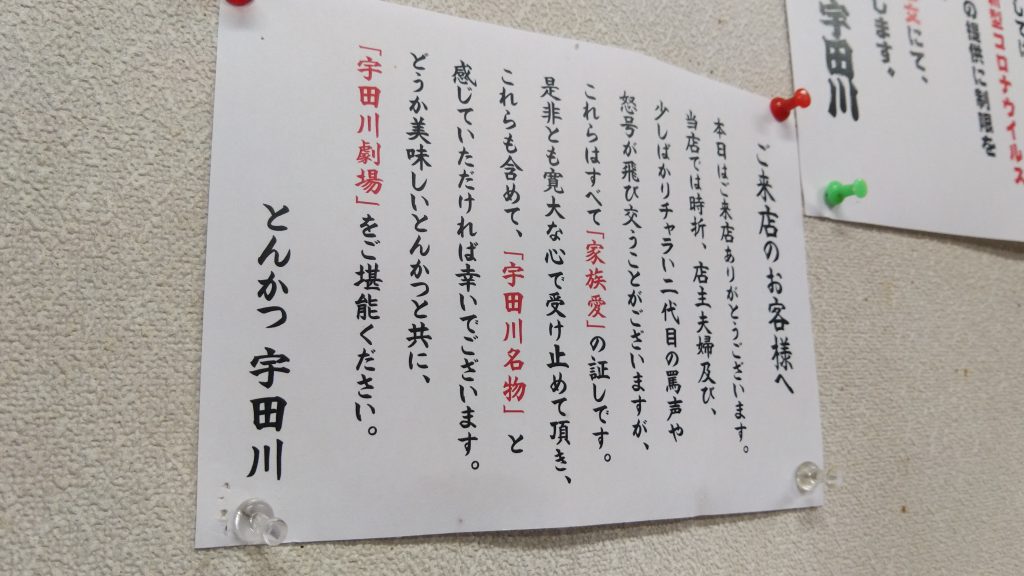 ご来店のお客様へ
本日はご来店ありがとうございます。
当店では時折、店主夫婦及び、
少しばかりチャラい二代目の罵声や
怒号が飛び交うことがございますが、
これらはすべて「家族愛」の証しです。
是非とも寛大な心で受け止めて頂き、
これらも含めて、「宇田川名物」と
感じていただければ幸いでございます。
どうか美味しいとんかつと共に、
「宇田川劇場」をご堪能ください。
とんかつ 宇田川
型コロナウイルス
の提供に制限を
にて、
します。
宇田川